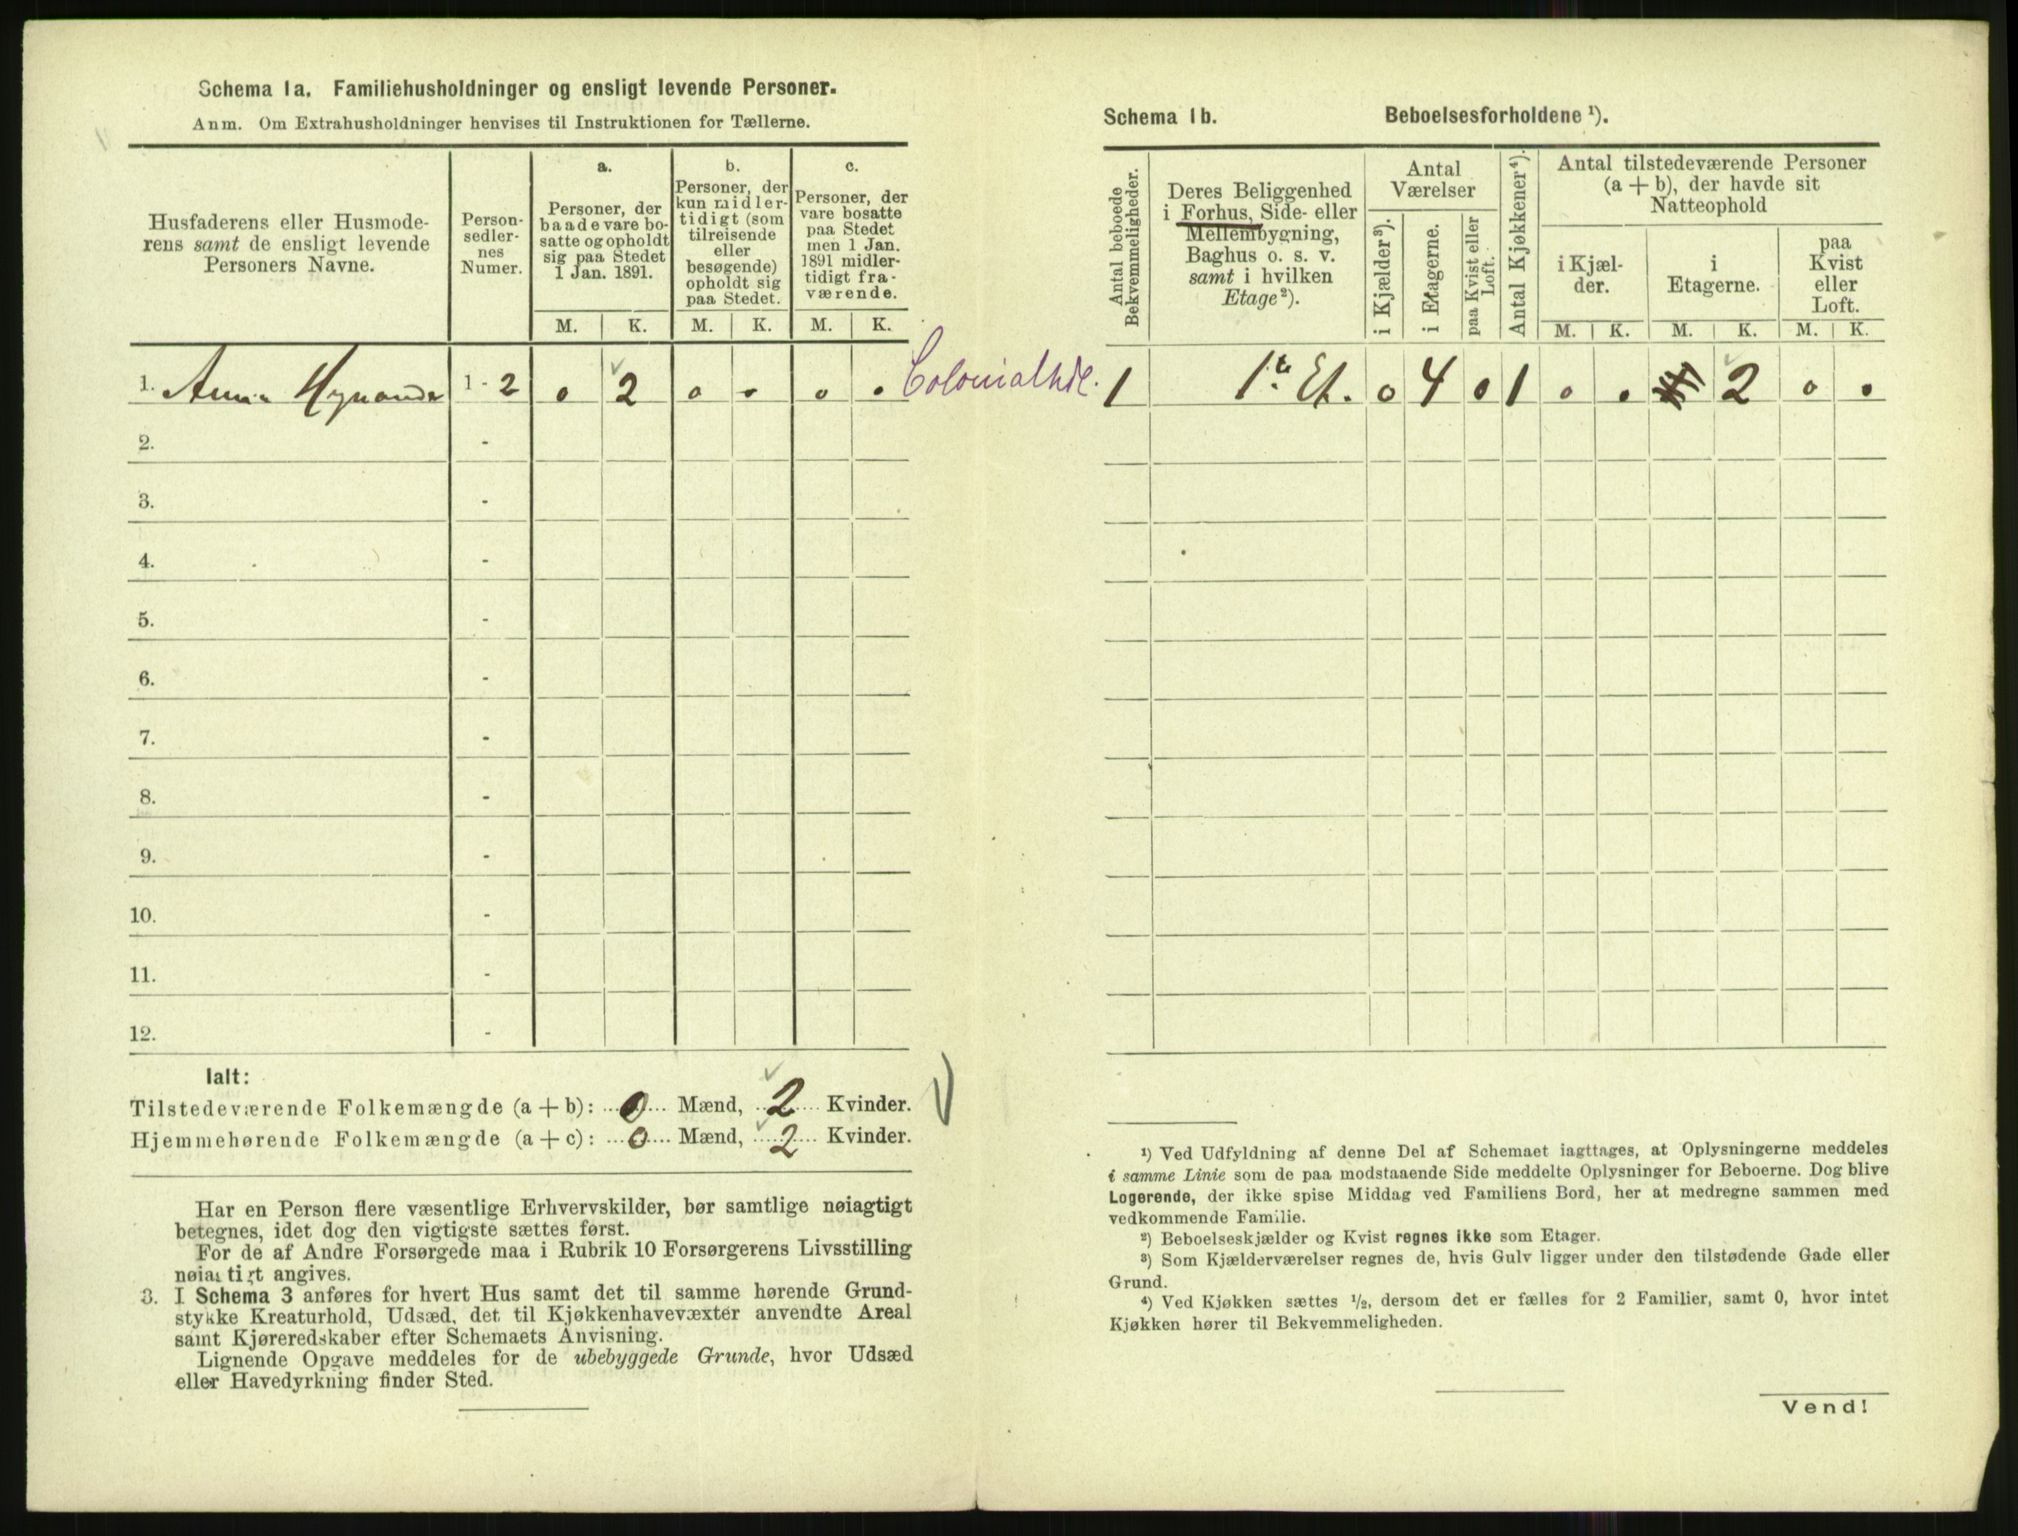 Schema 1a. Familiehusholdninger og ensligt levende Personer.
Anm. Om Extrahusholdninger henvises til Instruktionen for Tællerne.
Husfaderens eller Husmode-
rens samt de ensligt levende
Personers Navne.
Person-
sedler-
nes
Numer.
a.
Personer, der
baade vare bo-
satte og opholdt
sig paa Stedet
1 Jan. 1891.
b.
Personer, der
kun midler-
tidigt (som
tilreisende
eller
besøgende)
opholdt sig
paa Stedet.
c.
Personer, der
vare bosatte
paa Stedet
men 1 Jan.
1891 midler-
tidigt fra-
værende.
M. K. M. K. M. K.
1. Anna 1 - 2 0 2 0 . 0 . Colonialhdl.
2. -
3. -
4. -
5. -
6. -
7. -
8. -
9. -
10. -
11. -
12. -
Ialt:
Tilstedeværende Folkemængde (a + b): 0 Mænd, 2 Kvinder.
Hjemmehørende Folkemængde (a + c): 0 Mænd, 2 Kvinder.
Har en Person flere væsentlige Erhvervskilder, bør samtlige nøiagtigt
betegnes, idet dog den vigtigste sættes først.
For de af Andre Forsørgede maa i Rubrik 10 Forsørgerens Livsstilling
nøiagtigt angives.
3. I Schema 3 anføres for hvert Hus samt det til samme hørende Grund-
stykke Kreaturhold, Udsæd, det til Kjøkkenhavevæxter anvendte Areal
samt Kjøreredskaber efter Schemaets Anvisning.
Lignende Opgave meddeles for de ubebyggede Grunde, hvor Udsæd
eller Havedyrkning finder Sted.
Schema 1b. Beboelsesforholdene ¹).
Antal beboede
Bekvemmeligheder.
Deres Beliggenhed
i Forhus, Side- eller
Mellembygning,
Baghus o. s. v.
samt i hvilken
Etage ²).
Antal
Værelser
i Kjælder ³).
i Etagerne.
paa Kvist eller
Loft.
Antal Kjøkkener ⁴).
Antal tilstedeværende Personer
(a + b), der havde sit
Natteophold
i Kjæl-
der.
i
Etagerne.
paa
Kvist
eller
Loft.
M. K. M. K. M. K.
1 1te Et. 0 4 0 1 0 . 2 0 .
¹) Ved Udfyldning af denne Del af Schemaet iagttages, at Oplysningerne meddeles
i samme Linie som de paa modstaaende Side meddelte Oplysninger for Beboerne. Dog blive
Logerende, der ikke spise Middag ved Familiens Bord, her at medregne sammen med
vedkommende Familie.
²) Beboelseskjælder og Kvist regnes ikke som Etager.
³) Som Kjælderværelser regnes de, hvis Gulv ligger under den tilstødende Gade eller
Grund.
⁴) Ved Kjøkken sættes ½, dersom det er fælles for 2 Familier, samt 0, hvor intet
Kjøkken hører til Bekvemmeligheden.
Vend!